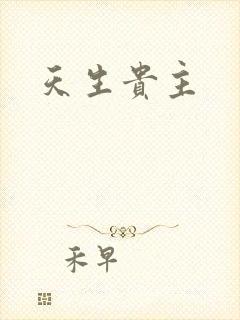 天生貴主
禾早